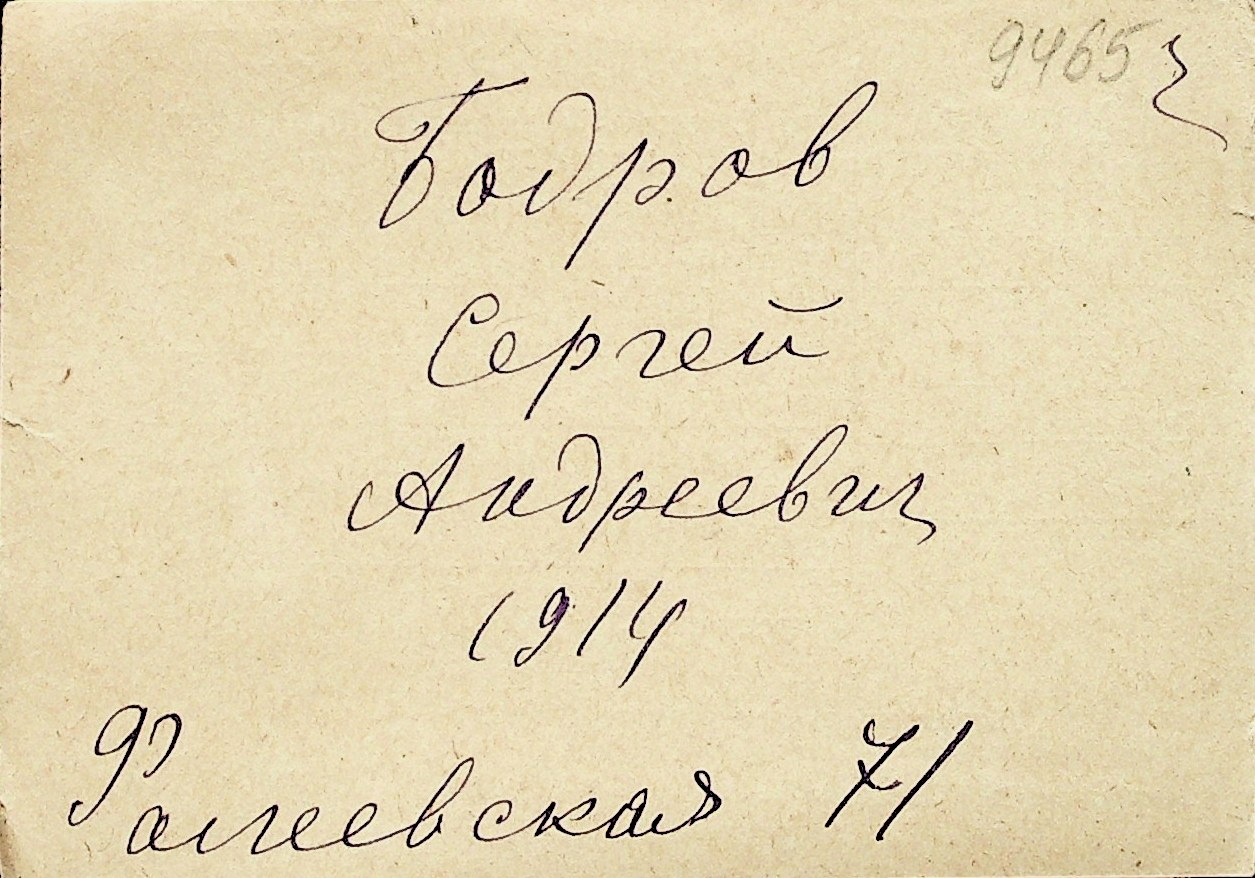 9465
Бодров
Сергей
Андреевич
1914
Фалеевская 71